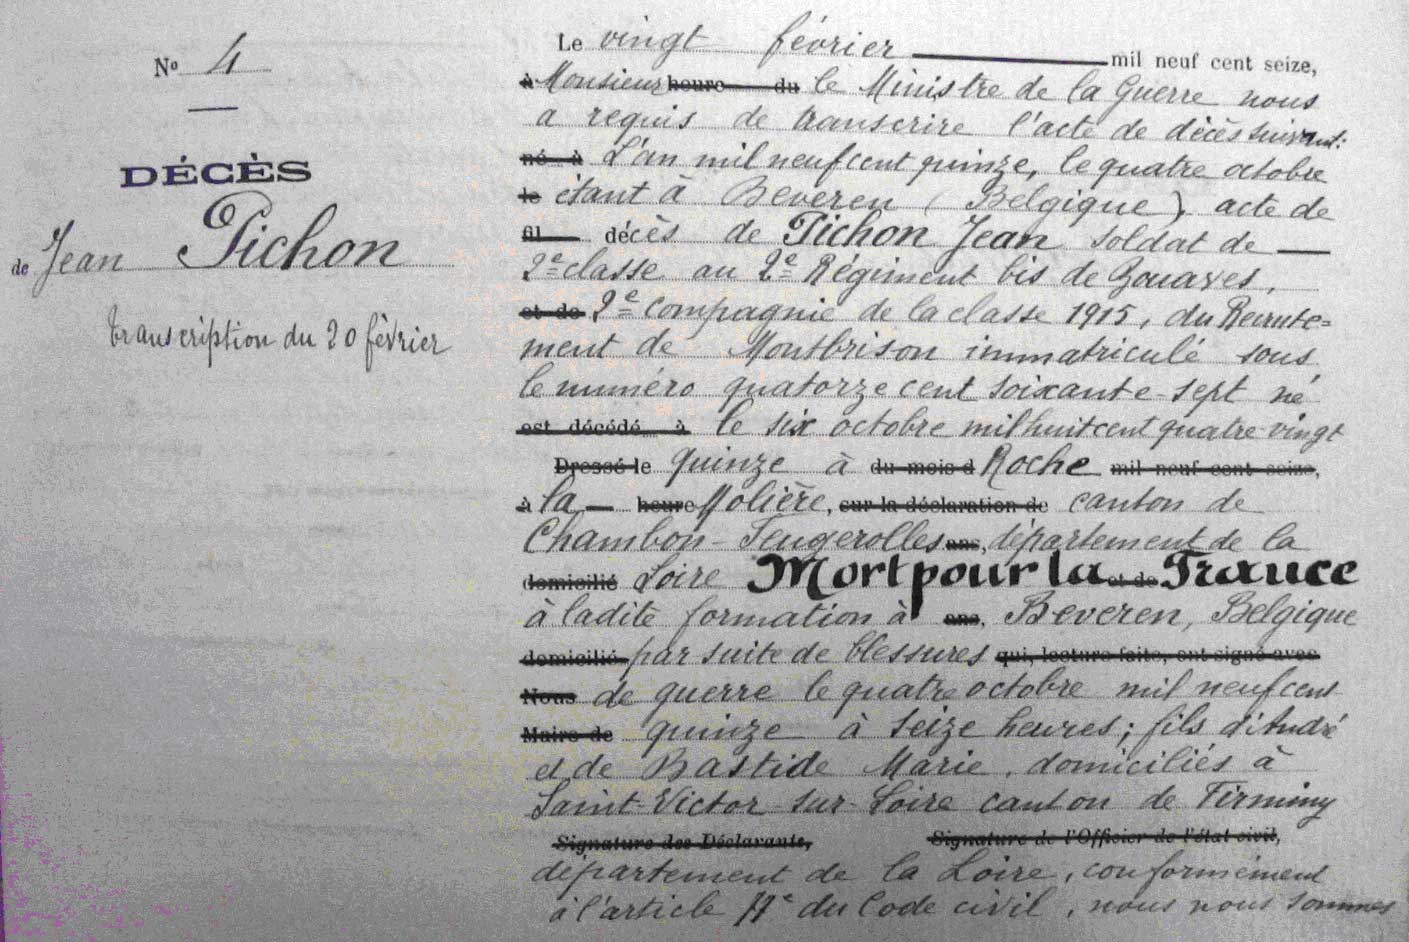 Nº 4
DÉCÈS
de Jean Pichon
transcription du 20 février
Le vingt février mil neuf cent seize,
à Monsieur heure du le Ministre de la Guerre nous
a requis de transcrire l'acte de décès suivant:
né à L'an mil neuf cent quinze, le quatre octobre
le étant à Beveren (Belgique), acte de
fil décès de Pichon Jean soldat de
2e classe au 2e Régiment bis de Zouaves,
et de 2e compagnie de la classe 1915, du Recrute=
ment de Montbrison immatriculé sous
le numéro quatorze cent soixante-sept né
est décédé à le six octobre mil huit cent quatre vingt
Dressé le quinze à du mois d Roche mil neuf cent seize,
à la heure Molière, sur la déclaration de canton de
Chambon-Feugerolles ans, département de la
domicilié Loire Mort pour la et de France
à ladite formation à ans, Beveren, Belgique
domicilié par suite de blessures qui, lecture faite, ont signé avec
Nous de guerre le quatre octobre mil neuf cent
Maire de quinze à seize heures; fils d'André
et de Bastide Marie, domiciliés à
Saint-Victor-sur-Loire canton de Firminy
Signature des Déclarants, Signature de l'Officier de l'état civil,
département de la Loire, conformément
à l'article du Code civil, nous nous sommes